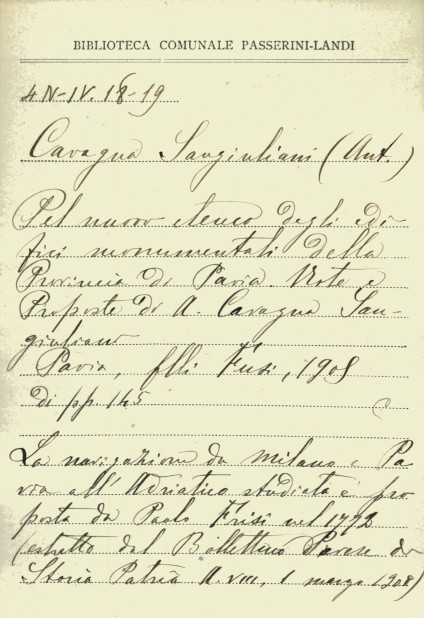 BIBLIOTECA COMUNALE PASSERINI-LANDI
4N-IV. 18-19
Cavagna Sangiuliani (Ant.)
Pel nuovo elenco degli edi-
fici monumentali della
Provincia di Pavia. Note e
Proposte di A. Cavagna San-
giuliani
Pavia, f.lli Fusi, 1908
di pp. 145
La navigazione da Milano e Pa
via all'Adriatico studiata e pro
posta da Paolo Frisi nel 1772
(estratto dal Bollettino Pavese di
Storia Patria A. VIII, 1 marzo 1908)